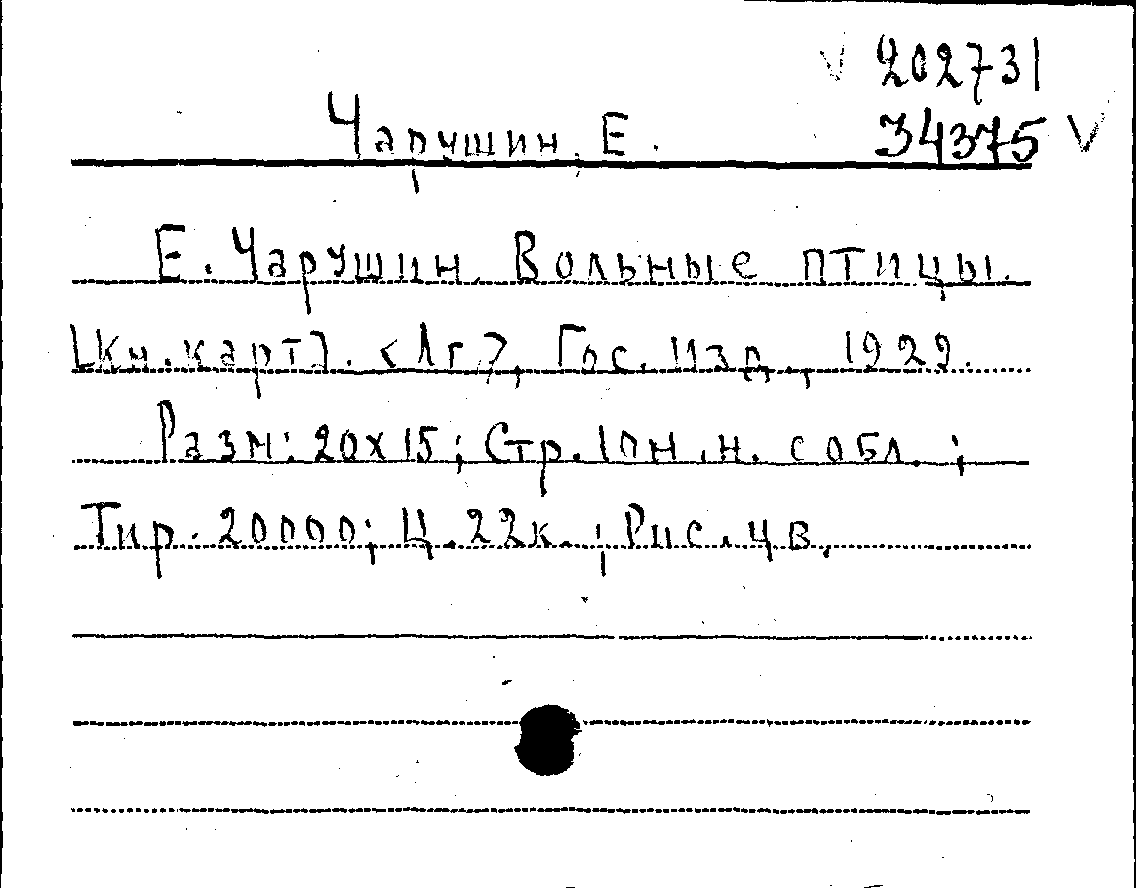 V 202731
34375 V
Чарушин, Е.
Е. Чарушин. Вольные птицы.
[Кн.карт]. <Лг>, Гос. изд., 1929.
Разм: 20х15; Стр. 10 н.н. с обл.;
Тир. 20000; Ц. 22к.; Рис. цв.